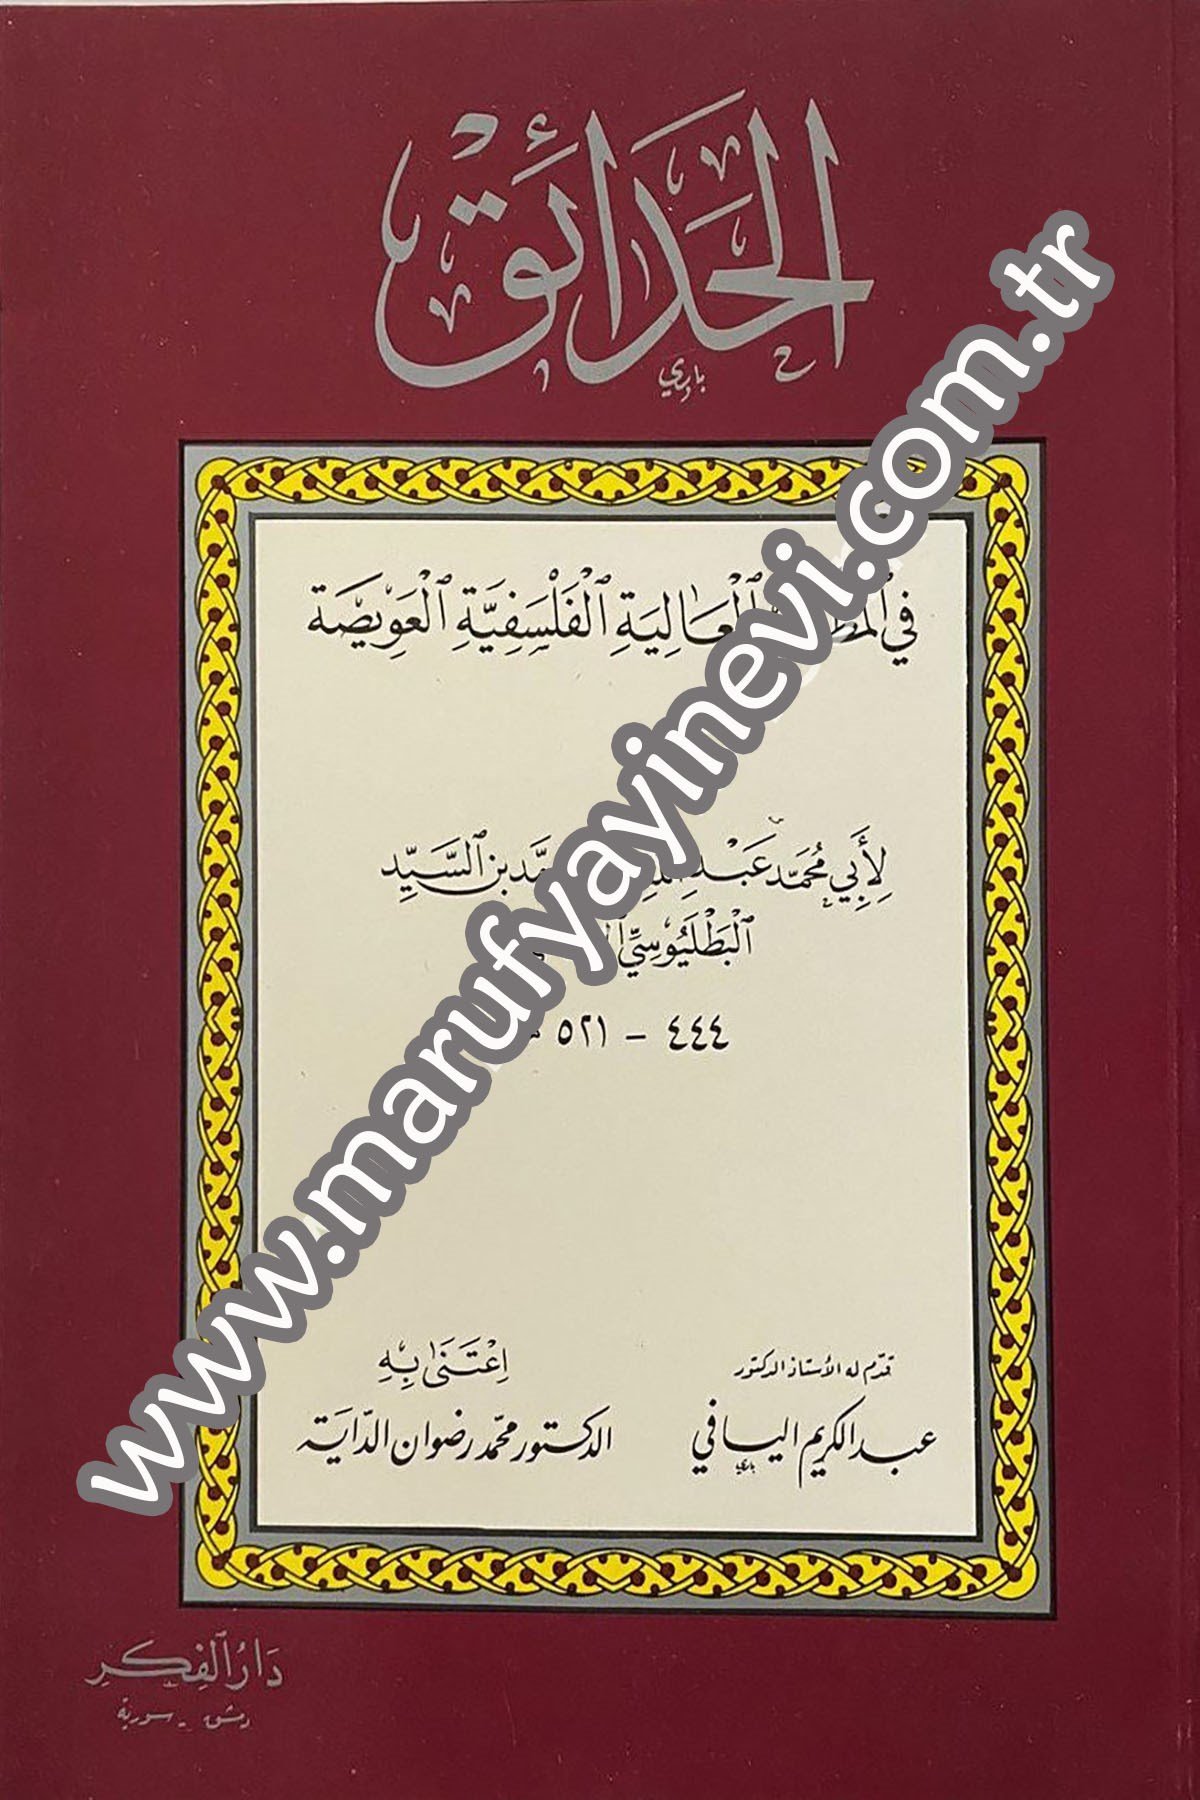 الحدائق
باري
في المطالب العالية الفلسفية العويصة
لأبي محمد عبد الله بن محمد بن السيد
البطليوسي
٤٤٤ - ٥٢١ هـ
قدم له الأستاذ الدكتور
عبد الكريم اليافي
باري
اعتنى به
الدكتور محمد رضوان الداية
دار الفكر
دمشق - سورية
www.marufyayinevi.com.tr